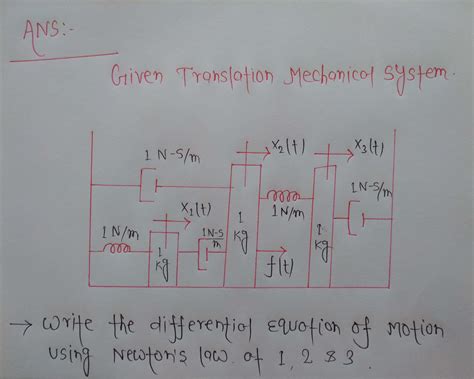 ANS:-
Given Translation Mechanical System.
x₂(t) x₃(t)
1 N-S/m
1 N-S/m
x₁(t)
1 N/m
1 N/m
1 N-S/m
1 kg
1 kg
1 kg
f(t)
→ Write the differential equation of Motion
using Newton's law at 1, 2 & 3.